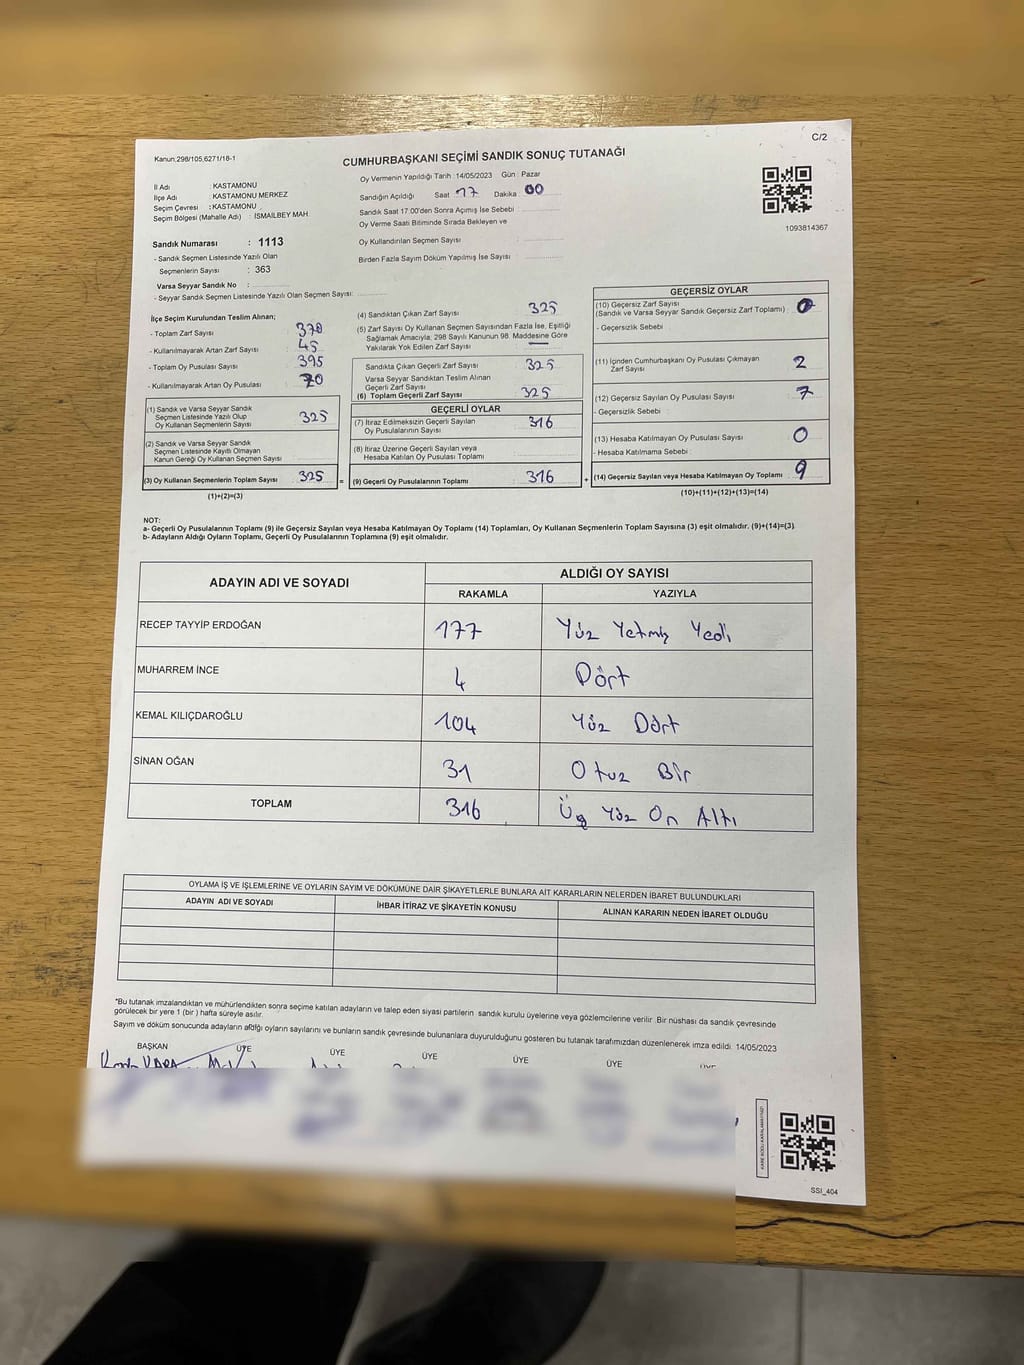 C/2
Kanun,298/105,6271/18-1
CUMHURBAŞKANI SEÇİMİ SANDIK SONUÇ TUTANAĞI
1093814367
İl Adı : KASTAMONU
İlçe Adı : KASTAMONU MERKEZ
Seçim Çevresi : KASTAMONU
Seçim Bölgesi (Mahalle Adı) : İSMAİLBEY MAH
Sandık Numarası : 1113
- Sandık Seçmen Listesinde Yazılı Olan
Seçmenlerin Sayısı : 363
Varsa Seyyar Sandık No :
- Seyyar Sandık Seçmen Listesinde Yazılı Olan Seçmen Sayısı:
Oy Vermenin Yapıldığı Tarih :14/05/2023 Gün : Pazar
Sandığın Açıldığı Saat 17 Dakika 00
Sandık Saat 17.00'den Sonra Açımış İse Sebebi :
Oy Verme Saati Bitiminde Sırada Bekleyen ve
Oy Kullandırılan Seçmen Sayısı :
Birden Fazla Sayım Döküm Yapılmış İse Sayısı :
İlçe Seçim Kurulundan Teslim Alınan;
- Toplam Zarf Sayısı : 370
- Kullanılmayarak Artan Zarf Sayısı : 45
- Toplam Oy Pusulası Sayısı : 395
- Kullanılmayarak Artan Oy Pusulası : 70
(1) Sandık ve Varsa Seyyar Sandık
Seçmen Listesinde Yazılı Olup
Oy Kullanan Seçmenlerin Sayısı : 325
(2) Sandık ve Varsa Seyyar Sandık
Seçmen Listesinde Kayıtlı Olmayan
Kanun Gereği Oy Kullanan Seçmen Sayısı :
(3) Oy Kullanan Seçmenlerin Toplam Sayısı : 325
(1)+(2)=(3)
=
(4) Sandıktan Çıkan Zarf Sayısı : 325
(5) Zarf Sayısı Oy Kullanan Seçmen Sayısından Fazla İse, Eşitliği
Sağlamak Amacıyla; 298 Sayılı Kanunun 98. Maddesine Göre
Yakılarak Yok Edilen Zarf Sayısı : —
Sandıkta Çıkan Geçerli Zarf Sayısı : 325
Varsa Seyyar Sandıktan Teslim Alınan
Geçerli Zarf Sayısı :
(6) Toplam Geçerli Zarf Sayısı : 325
GEÇERLİ OYLAR
(7) İtiraz Edilmeksizin Geçerli Sayılan
Oy Pusulalarının Sayısı : 316
(8) İtiraz Üzerine Geçerli Sayılan veya
Hesaba Katılan Oy Pusulası Toplamı :
(9) Geçerli Oy Pusulalarının Toplamı : 316
+
GEÇERSİZ OYLAR
(10) Geçersiz Zarf Sayısı
(Sandık ve Varsa Seyyar Sandık Geçersiz Zarf Toplamı) : 0
- Geçersizlik Sebebi :
(11) İçinden Cumhurbaşkanı Oy Pusulası Çıkmayan
Zarf Sayısı : 2
(12) Geçersiz Sayılan Oy Pusulası Sayısı : 7
- Geçersizlik Sebebi :
(13) Hesaba Katılmayan Oy Pusulası Sayısı : 0
- Hesaba Katılmama Sebebi :
(14) Geçersiz Sayılan veya Hesaba Katılmayan Oy Toplamı : 9
(10)+(11)+(12)+(13)=(14)
NOT:
a- Geçerli Oy Pusulalarının Toplamı (9) ile Geçersiz Sayılan veya Hesaba Katılmayan Oy Toplamı (14) Toplamları, Oy Kullanan Seçmenlerin Toplam Sayısına (3) eşit olmalıdır. (9)+(14)=(3)
b- Adayların Aldığı Oyların Toplamı, Geçerli Oy Pusulalarının Toplamına (9) eşit olmalıdır.
ADAYIN ADI VE SOYADI ALDIĞI OY SAYISI
RAKAMLA YAZIYLA
RECEP TAYYİP ERDOĞAN 177 Yüz Yetmiş Yedi
MUHARREM İNCE 4 Dört
KEMAL KILIÇDAROĞLU 104 Yüz Dört
SİNAN OĞAN 31 Otuz Bir
TOPLAM 316 Üç Yüz On Altı
OYLAMA İŞ VE İŞLEMLERİNE VE OYLARIN SAYIM VE DÖKÜMÜNE DAİR ŞİKAYETLERLE BUNLARA AİT KARARLARIN NELERDEN İBARET BULUNDUKLARI
ADAYIN ADI VE SOYADI İHBAR İTİRAZ VE ŞİKAYETİN KONUSU ALINAN KARARIN NEDEN İBARET OLDUĞU
*Bu tutanak imzalandıktan ve mühürlendikten sonra seçime katılan adayların ve talep eden siyasi partilerin sandık kurulu üyelerine veya gözlemcilerine verilir. Bir nüshası da sandık çevresinde
görülecek bir yere 1 (bir ) hafta süreyle asılır.
Sayım ve döküm sonucunda adayların aldığı oyların sayılarını ve bunların sandık çevresinde bulunanlara duyurulduğunu gösteren bu tutanak tarafımızdan düzenlenerek imza edildi. 14/05/2023
BAŞKAN ÜYE ÜYE ÜYE ÜYE ÜYE ÜYE
KARA
SSI_404